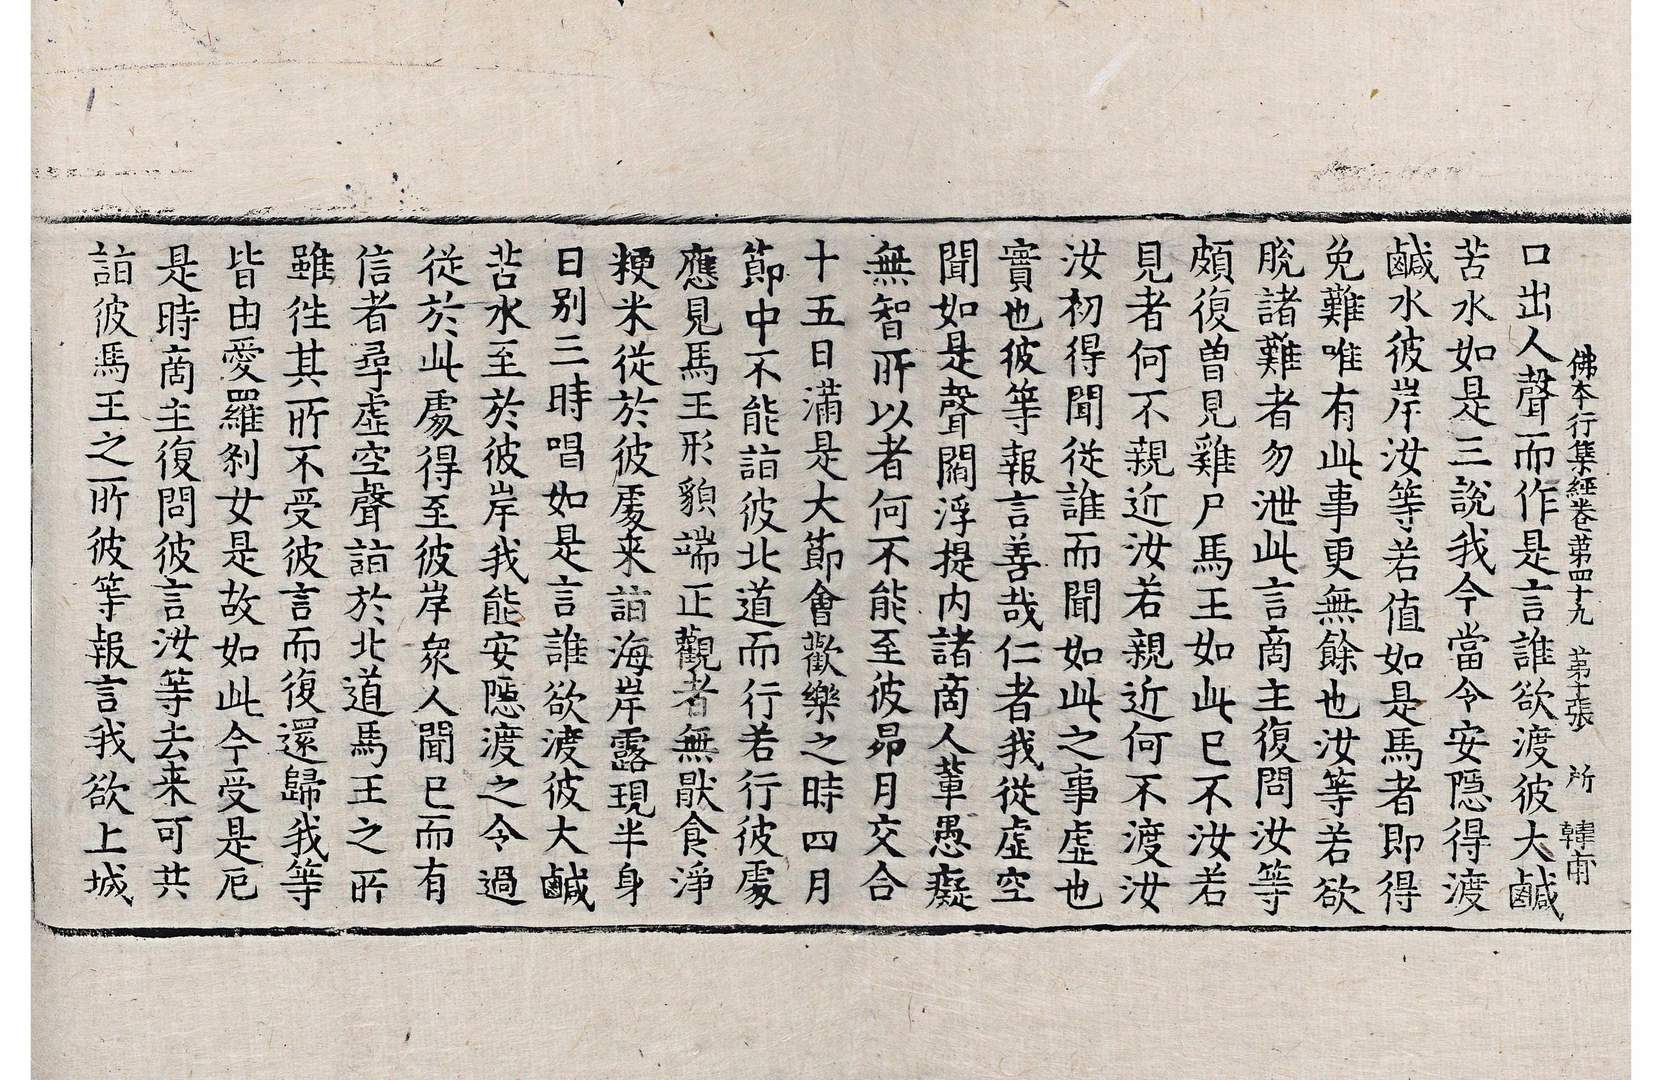 佛本行集經卷苐四十九 苐十張 所 韓甫
口出人聲而作是言誰欲渡彼大鹹
苦水如是三說我今當令安隱得渡
鹹水彼岸汝等若值如是馬者即得
免難唯有此事更無餘也汝等若欲
脫諸難者勿泄此言商主復問汝等
頗復曽見雞尸馬王如此已不汝若
見者何不親近汝若親近何不渡汝
汝初得聞從誰而聞如此之事虛也
實也彼等報言善哉仁者我從虛空
聞如是聲閻浮提内諸商人輩愚癡
無智所以者何不能至彼昴月交合
十五日滿是大節會歡樂之時四月
節中不能詣彼北道而行若行彼處
應見馬王形貌端正觀者無猒食淨
粳米從於彼處来詣海岸露現半身
日别三時唱如是言誰欲渡彼大鹹
苦水至於彼岸我能安隱渡之令過
從於此處得至彼岸衆人聞已而有
信者尋虛空聲詣於北道馬王之所
雖往其所不受彼言而復還歸我等
皆由愛羅刹女是故如此今受是厄
是時商主復問彼言汝等去来可共
詣彼馬王之所彼等報言我欲上城